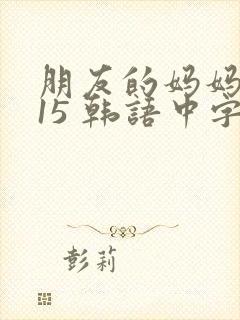 朋友的妈妈
15 韩語中字
彭莉